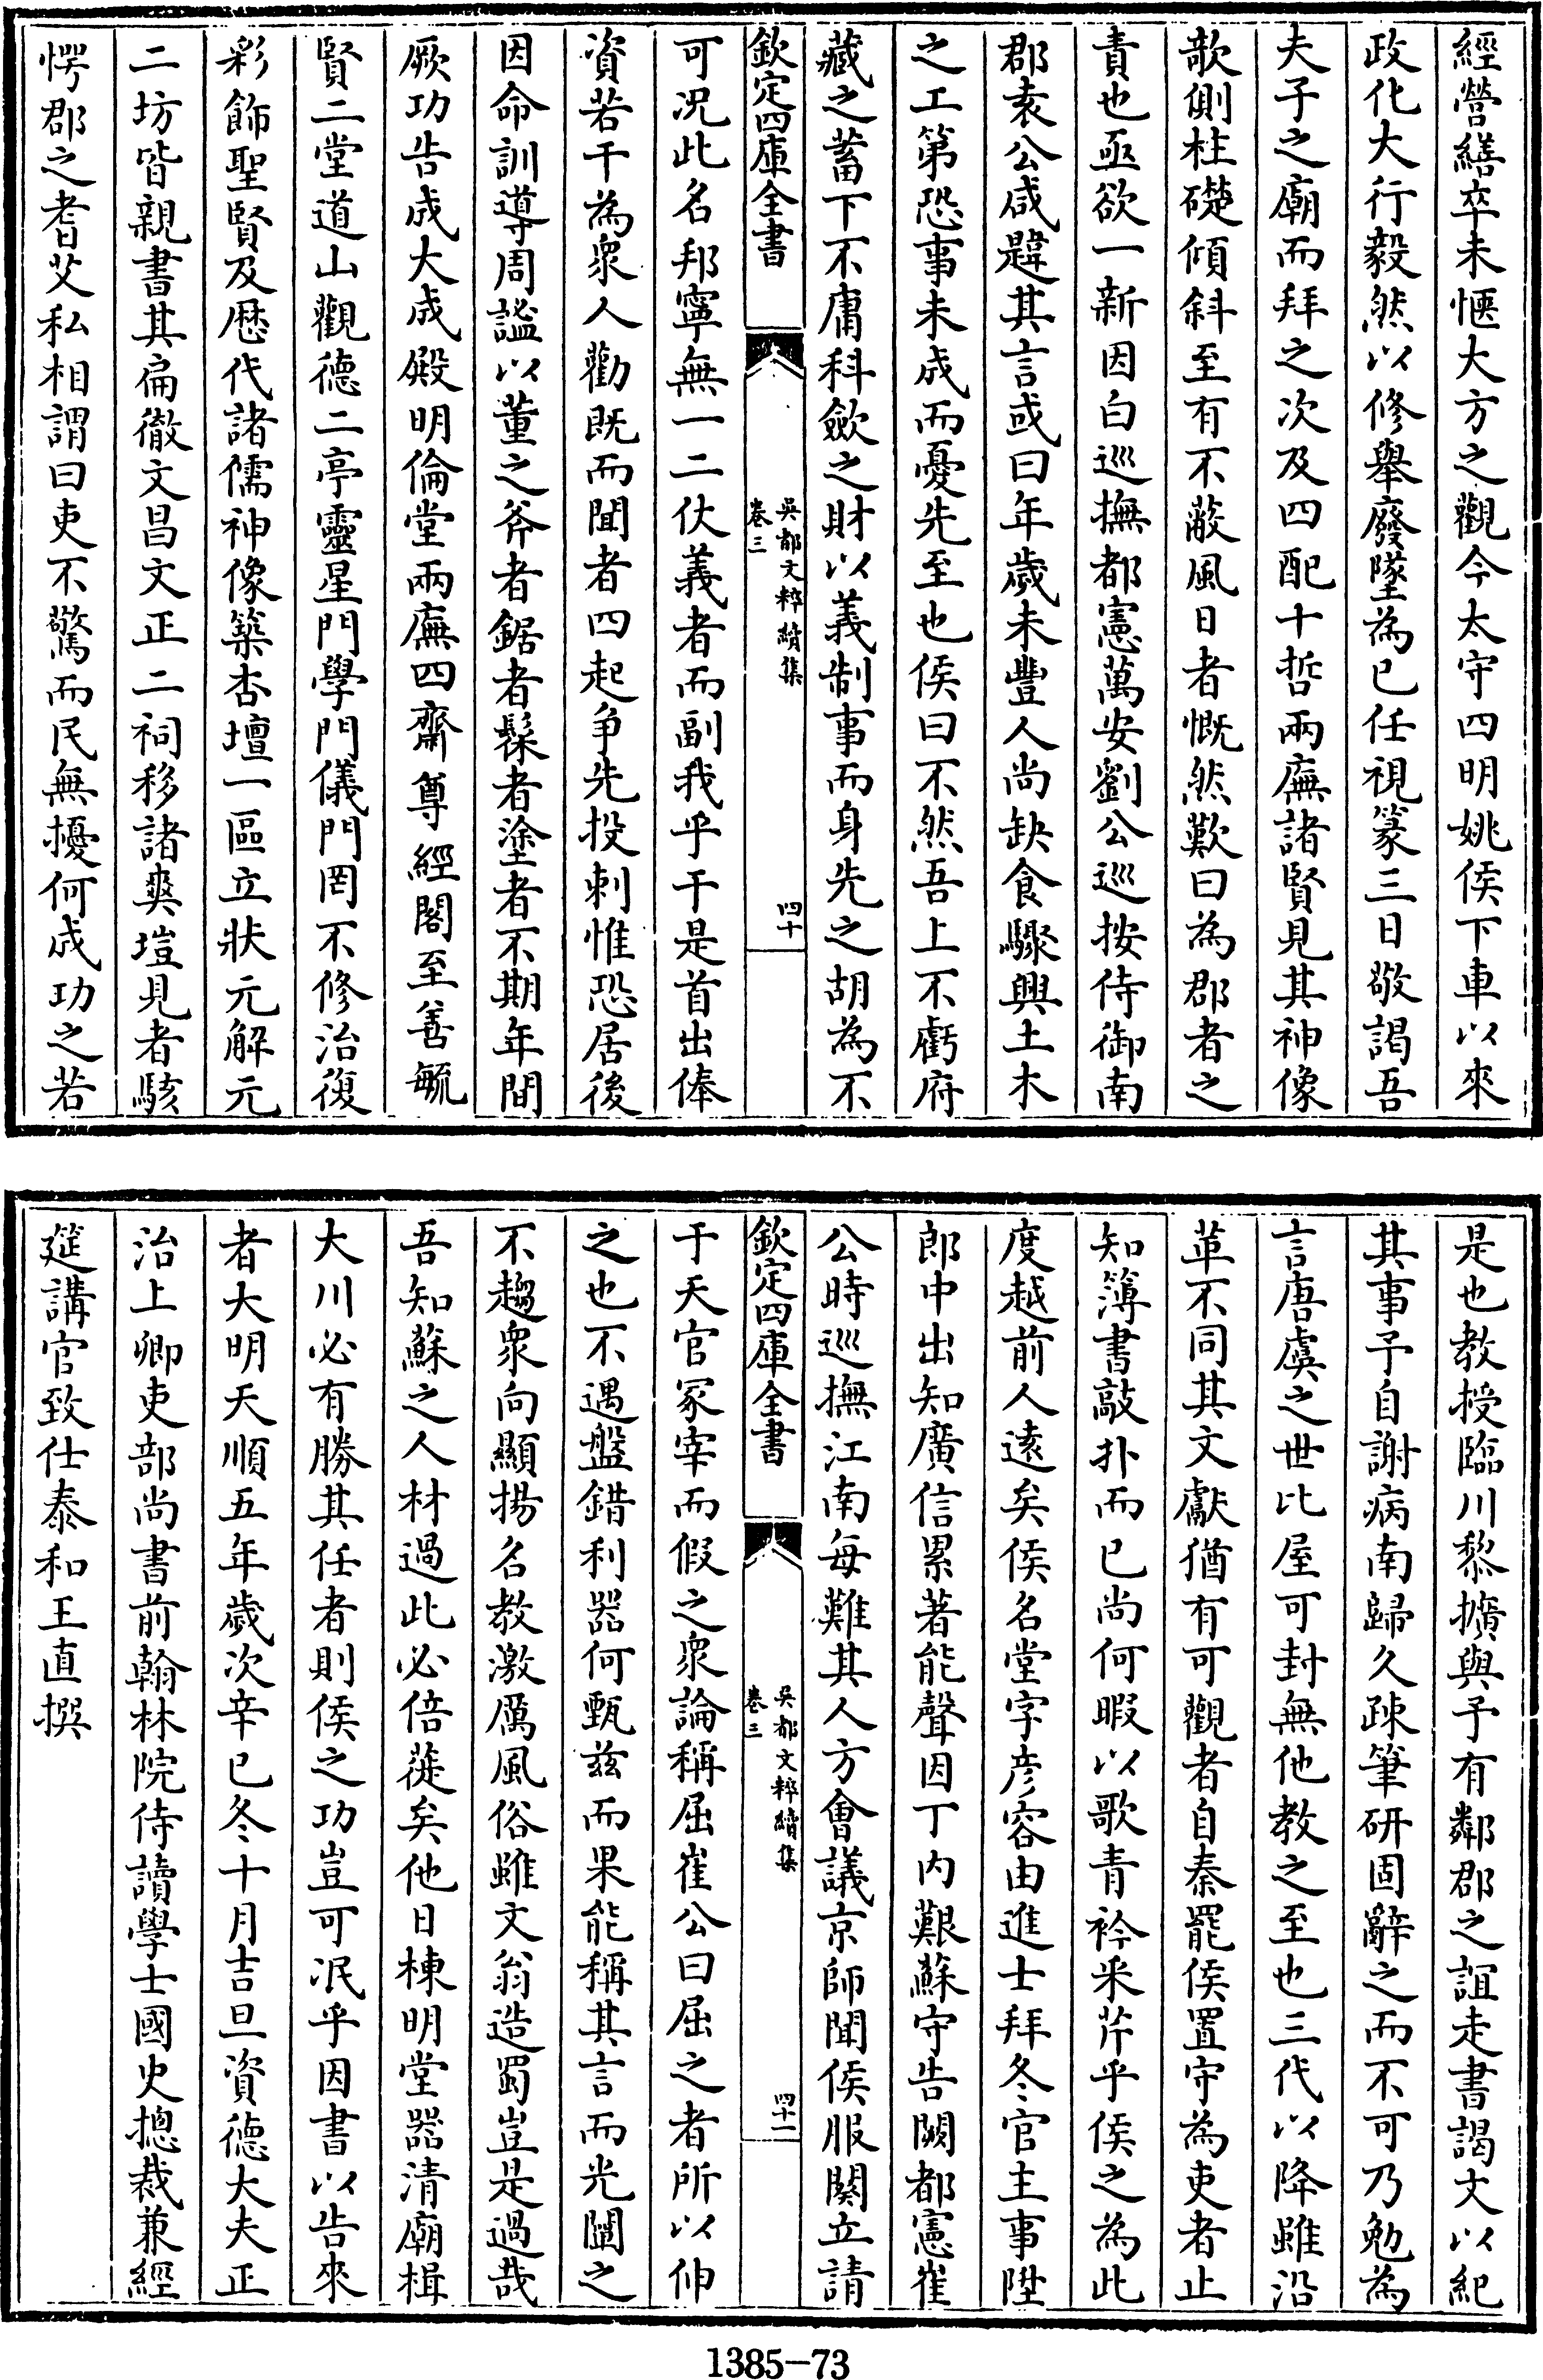 經營繕卒未愜大方之觀今太守四明姚侯下車以來
政化大行毅然以修舉廢墜為已任視篆三日敬謁吾
夫子之廟而拜之次及四配十哲兩廡諸賢見其神像
欹側柱礎傾斜至有不蔽風日者慨然歎曰為郡者之
責也亟欲一新因白巡撫都憲萬安劉公巡按侍御南
郡袁公咸韙其言或曰年歲未豐人尚缺食驟興土木
之工第恐事未成而憂先至也侯曰不然吾上不虧府
藏之蓄下不庸科斂之財以義制事而身先之胡為不
欽定四庫全書
吳都文粹續集
卷三
四十
可况此名邦寧無一二仗義者而副我乎于是首出俸
資若干為衆人勸既而聞者四起争先投刺惟恐居後
因命訓導周謐以董之斧者鋸者髹者塗者不期年間
厥功告成大成殿明倫堂兩廡四齋尊經閣至善毓
賢二堂道山觀德二亭靈星門學門儀門罔不修治復
彩飾聖賢及歴代諸儒神像築杏壇一區立狀元解元
二坊皆親書其扁徹文昌文正二祠移諸爽塏見者駭
愕郡之耆艾私相謂曰吏不驚而民無擾何成功之若
是也教授臨川黎擴與予有鄰郡之誼走書謁文以紀
其事予自謝病南歸久疎筆研固辭之而不可乃勉為
言唐虞之世比屋可封無他教之至也三代以降雖沿
革不同其文獻猶有可觀者自秦罷侯置守為吏者止
知簿書敲扑而已尚何暇以歌青衿采芹乎侯之為此
度越前人遠矣侯名堂字彦容由進士拜冬官主事陞
郎中出知廣信累著能聲因丁内艱蘇守告闕都憲崔
公時巡撫江南每難其人方會議京師聞侯服闋立請
欽定四庫全書
吳都文粹續集
卷三
四十一
于天官冢宰而假之衆論稱屈崔公曰屈之者所以伸
之也不遇盤錯利器何甄兹而果能稱其言而光闡之
不趨衆向顯揚名教激厲風俗雖文翁造蜀豈是過哉
吾知蘇之人材過此必倍蓰矣他日棟明堂器清廟楫
大川必有勝其任者則侯之功豈可泯乎因書以告來
者大明天順五年歲次辛巳冬十月吉旦資德大夫正
治上卿吏部尚書前翰林院侍讀學士國史摠裁兼經
筵講官致仕泰和王直撰
1385-73